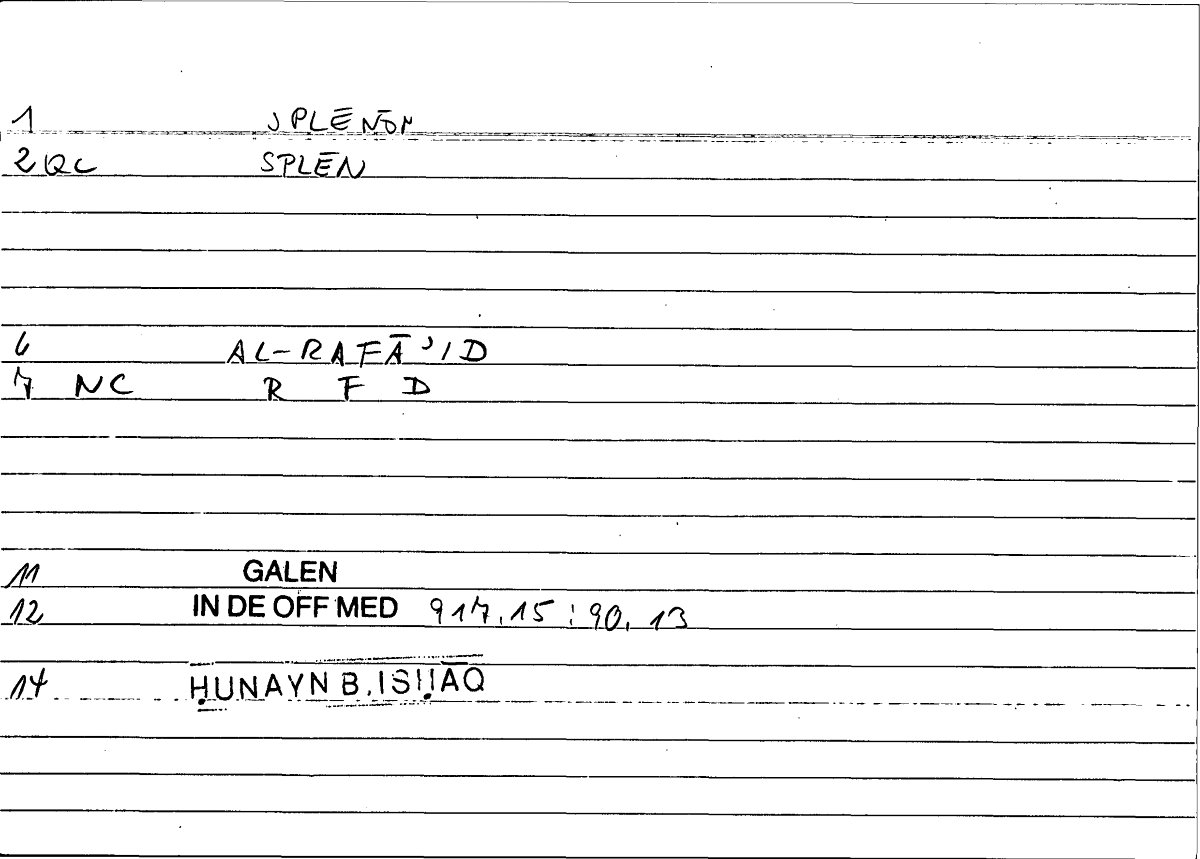 1 SPLĒNŌN
2 QC SPLĒN
6 AL-RAFĀʾID
7 NC R F D
11 GALEN
12 IN DE OFF MED 917,15 : 90,13
14 ḤUNAYN B. ISḤĀQ